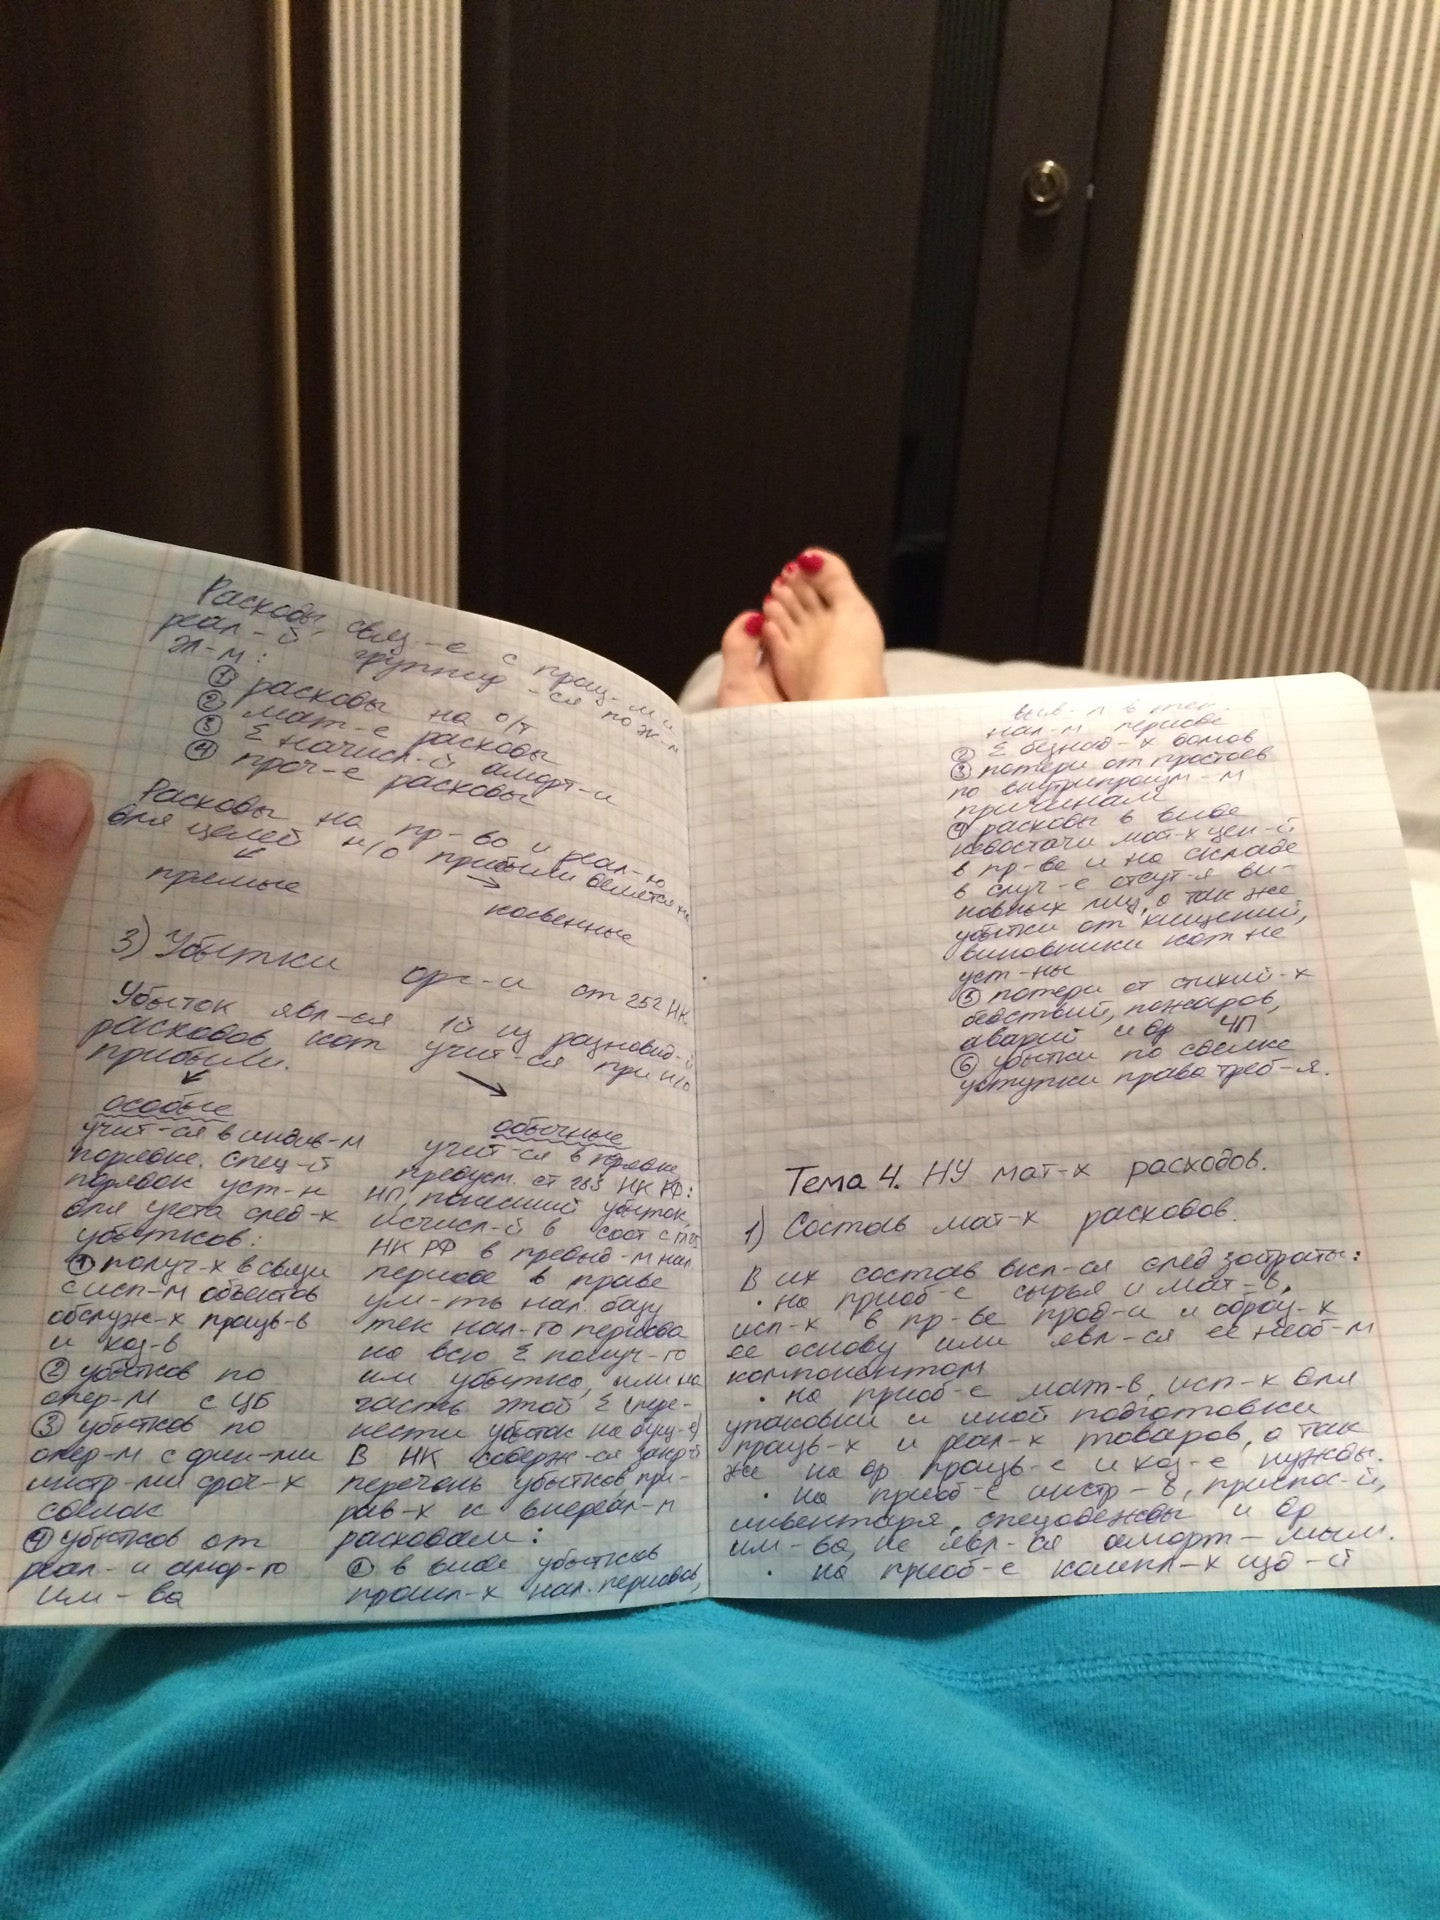 Расходы, связ-е с произ-м и
реал-й, группир-ся по эл-м
эл-м:
① расходы на о/т
② мат-е расходы
③ Σ начисл-й аморт-и
④ проч-е расходы
Расходы на пр-во и реал-ю
для целей н/о прибыли делятся на
прямые
косвенные
3) Убытки орг-и ст 252 НК
Убыток явл-ся 1й из разновид-й
расходов кот учит-ся при н/о
прибыли.
особые
учит-ся в индив-м
порядке. Спец-й
порядок уст-н
для учета след-х
убытков:
① получ-х в связи
с исп-м объектов
обслуж-х произв-в
и хоз-в
② убытков по
опер-м с ЦБ
③ убытков по
опер-м с фин-ми
инстр-ми сроч-х
сделок
④ убытков от
реал-и амор-го
им-ва
обычные
учит-ся в порядке
предусм. ст 283 НК РФ:
НП, понесший убыток,
исчисл-й в соот с гл 25
НК РФ в предыд-м нал.
периоде в праве
ум-ть нал. базу
тек нал-го периода
на всю Σ получ-го
им убытка, или на
часть этой Σ (пере-
нести убыток на буд-е)
В НК содерж-ся закр-й
перечень убытков, при-
рав-х к внереал-м
расходам:
① в виде убытков
прошл-х нал. периодов,
выяв-л в тек.
нал-м периоде
② Σ безнад-х долгов
③ потери от простоев
по внутрипроизв-м
причинам
④ расходы в виде
недостачи мат-х цен-й
в пр-ве и на складе
в случ-е отсут-я ви-
новных лиц, а так же
убытки от хищений,
виновники кот не
уст-ны
⑤ потери от стихий-х
бедствий, пожаров,
аварий и др ЧП
⑥ убытки по сделке
уступки права треб-я.
Тема 4. НУ мат-х расходов.
1) Состав мат-х расходов.
В их состав вкл-ся след затраты:
• на приоб-е сырья и мат-в,
исп-х в пр-ве прод-и и образ-х
ее основу или явл-ся ее необ-м
компонентом
• на приоб-е мат-в, исп-х для
упаковки и иной подготовки
произв-х и реал-х товаров, а так
же на др произв-е и хоз-е нужды.
• на приоб-е инстр-в, приспос-й,
инвентаря, спецодежды и др
им-ва, не явл-ся аморт-мым.
• на приоб-е компл-х изд-й